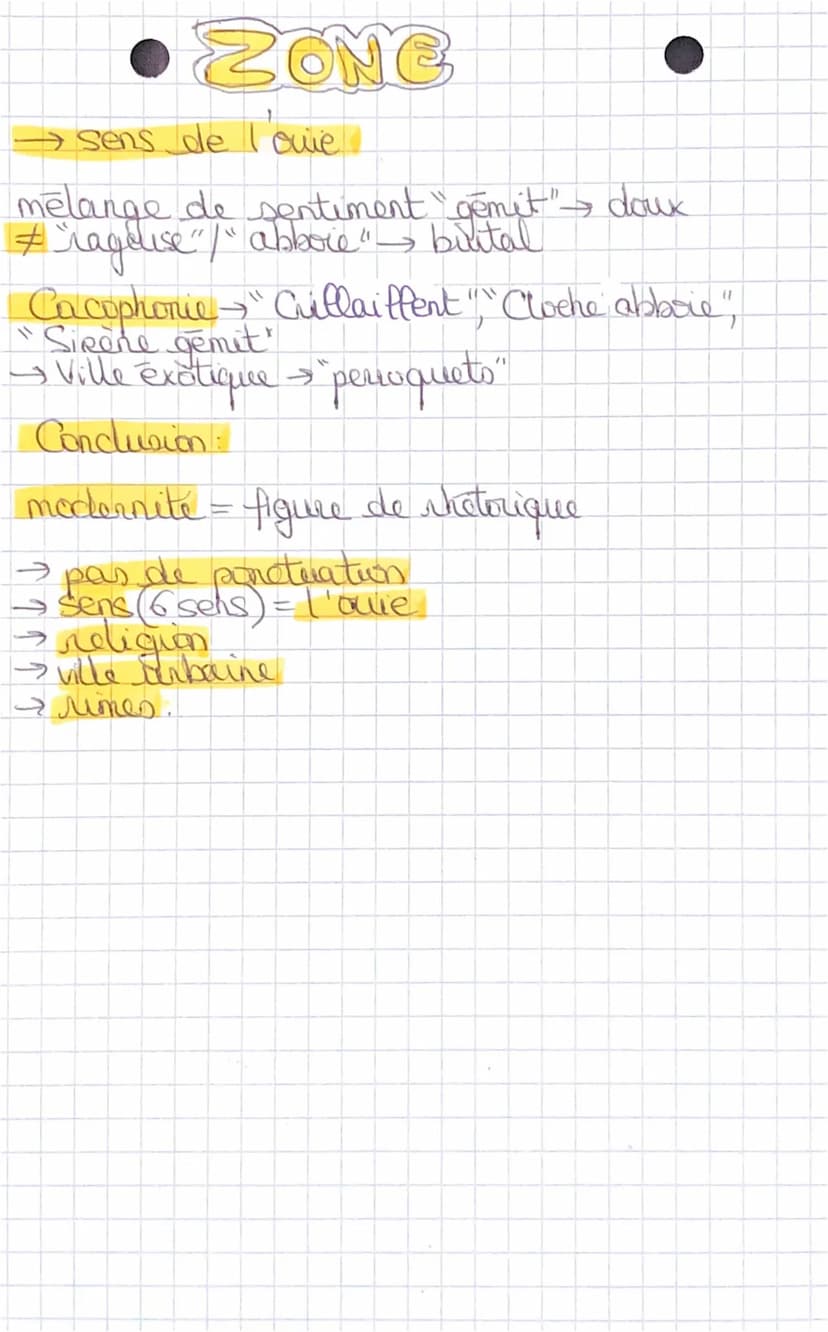 ZONE
→ sens de l'ouie
mélange de sentiment "gémit" → doux
≠ "rageuse" / "abboie" → brutal
Cacophonie → "Crillaiffent", "Cloche abboie",
"Sirène gémit"
→ Ville éxotique → "perroquets"
Conclusion :
modernité = figure de rhétorique
→ pas de ponctuation
→ sens (6 sens) = l'ouie
→ religion
→ ville urbaine
→ rimes.